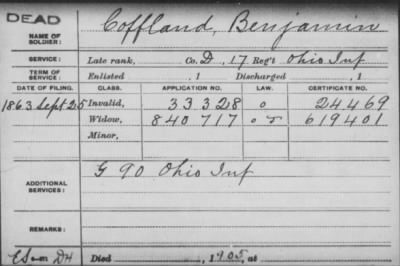 DEAD
NAME OF SOLDIER: Coffland, Benjamin
SERVICE: Late rank, Co. D, 17 Reg't Ohio Inf
TERM OF SERVICE: Enlisted , 1 Discharged , 1
DATE OF FILING. CLASS. APPLICATION NO. LAW. CERTIFICATE NO.
1863 Sept 25 Invalid, 33328 o 24469
Widow, 840717 619401
Minor,
ADDITIONAL SERVICES: G 90 Ohio Inf
REMARKS:
Died , 1905, at